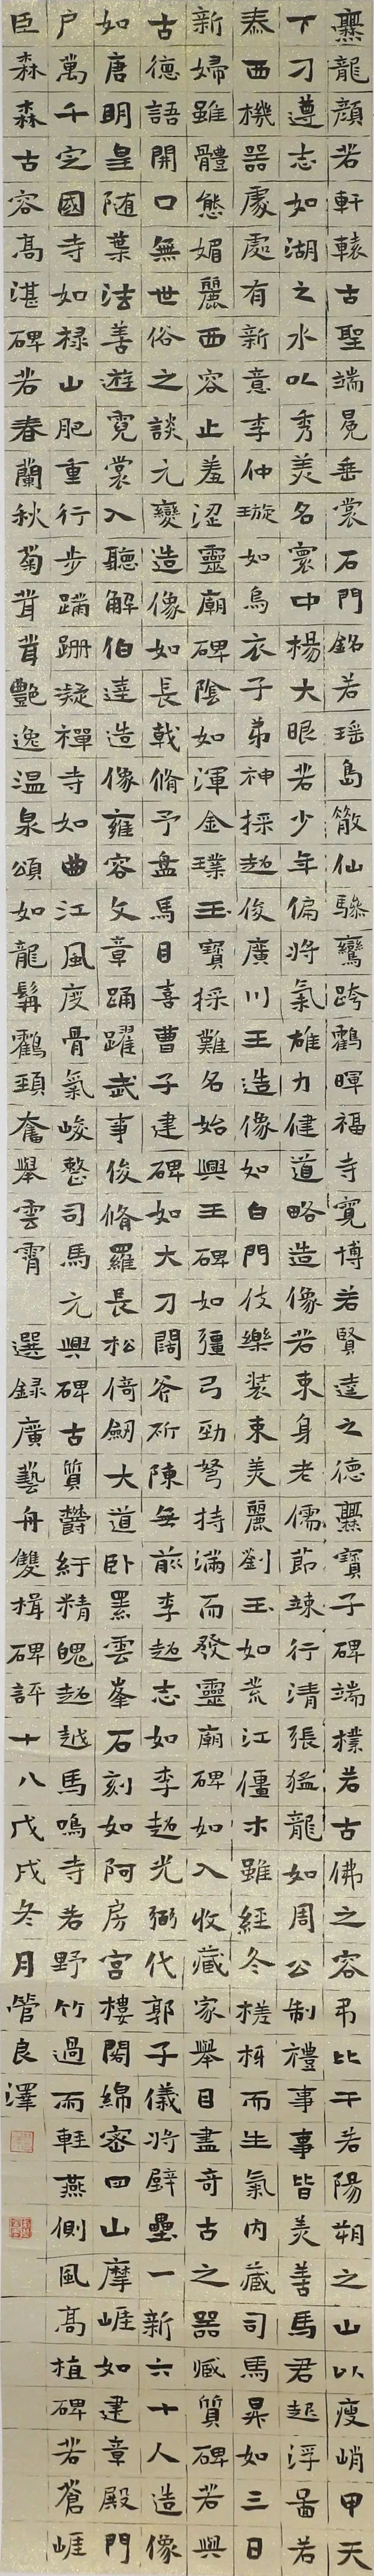 爨龍顏若軒轅古聖端冕垂裳石門銘若瑶島散仙驂鸞跨鶴暉福寺寛博若賢達之德爨寶子碑端樸若古佛之容弔比干若陽朔之山以瘦峭甲天
下刁遵志如湖之水以秀美名寰中楊大眼若少年偏將氣雄力健道略造像若束身老儒節竦行清張猛龍如周公制禮事事皆美善馬君起浮啚若
泰西機器處處有新意李仲璇如烏衣子弟神採超俊廣川王造像如白門伎樂裝束美麗劉玉如荒江僵木雖經冬槎枒而生氣内藏司馬昇如三日
新婦雖體態媚麗西容止羞澀靈廟碑陰如渾金璞玉寶採難名始興王碑如彊弓勁弩持滿而發靈廟碑如入收藏家舉目盡奇古之器臧質碑若與
古德語開口無世俗之談元燮造像如長戟脩予盤馬目喜曹子建碑如大刀闊斧斫陳無前李超志如李超光弼代郭子儀將壁壘一新六十人造像
如唐明皇随葉法善遊霓裳入聽解伯達造像雍容文章踊躍武事俊脩羅長松倚劒大道卧羆雲峯石刻如阿房宮樓閣綿密四山摩崖如建章殿門
户萬千定國寺如禄山肥重行步蹣跚凝禪寺如曲江風度骨氣峻整司馬元興碑古質鬱紆精魄超越馬鳴寺若野竹過而輕燕側風髙植碑若蒼崖
臣森森古容髙湛碑若春蘭秋菊茸茸艷逸溫泉頌如龍髯鶴頸奮舉雲霄 選録廣藝舟雙楫碑評十八戊戌冬月管良澤